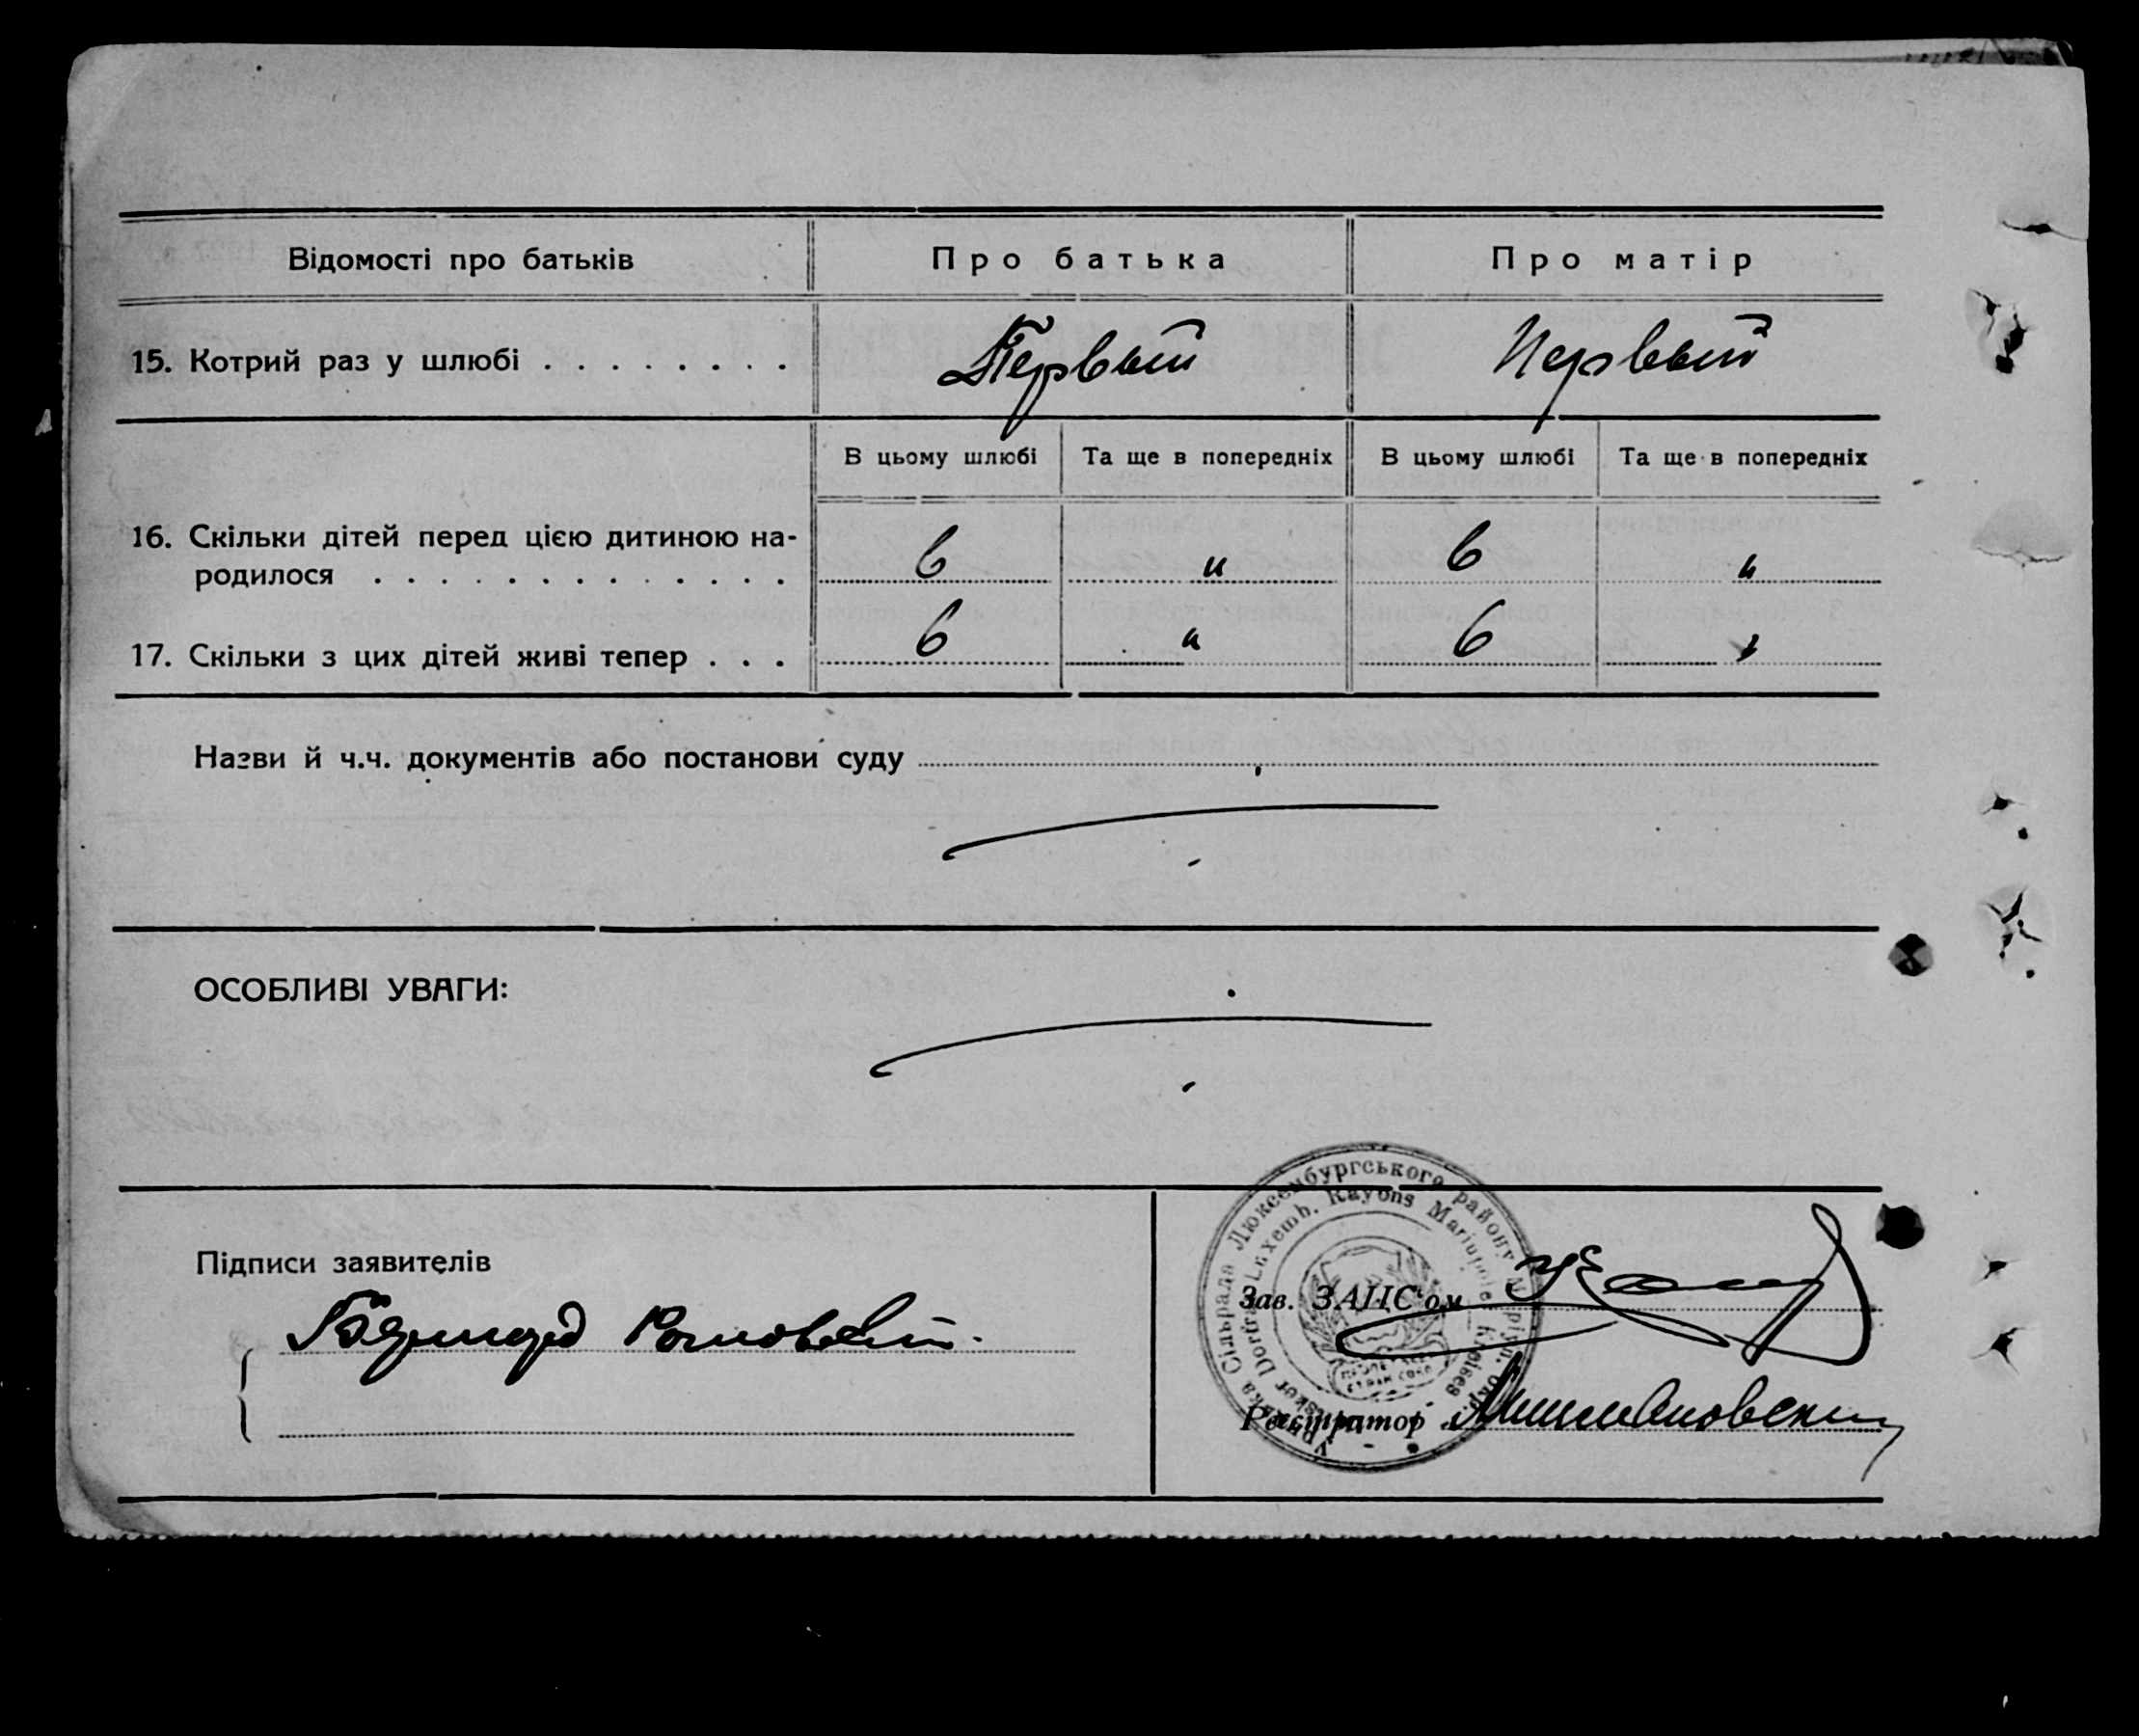 Відомості про батьків
Про батька
Про матір
15. Котрий раз у шлюбі . . . . . . . .
Первый
Первый
В цьому шлюбі
Та ще в попередніх
В цьому шлюбі
Та ще в попередніх
16. Скільки дітей перед цією дитиною на-
родилося . . . . . . . . . . . . .
6
"
6
"
17. Скільки з цих дітей живі тепер . . .
6
"
6
Назви й ч.ч. документів або постанови суду
ОСОБЛИВІ УВАГИ:
Підписи заявителів
Зав. ЗАЦС'ом
Реєстратор
Сільрада Люксембургського району
Luxemb. Rayons Mariupoler Kreises